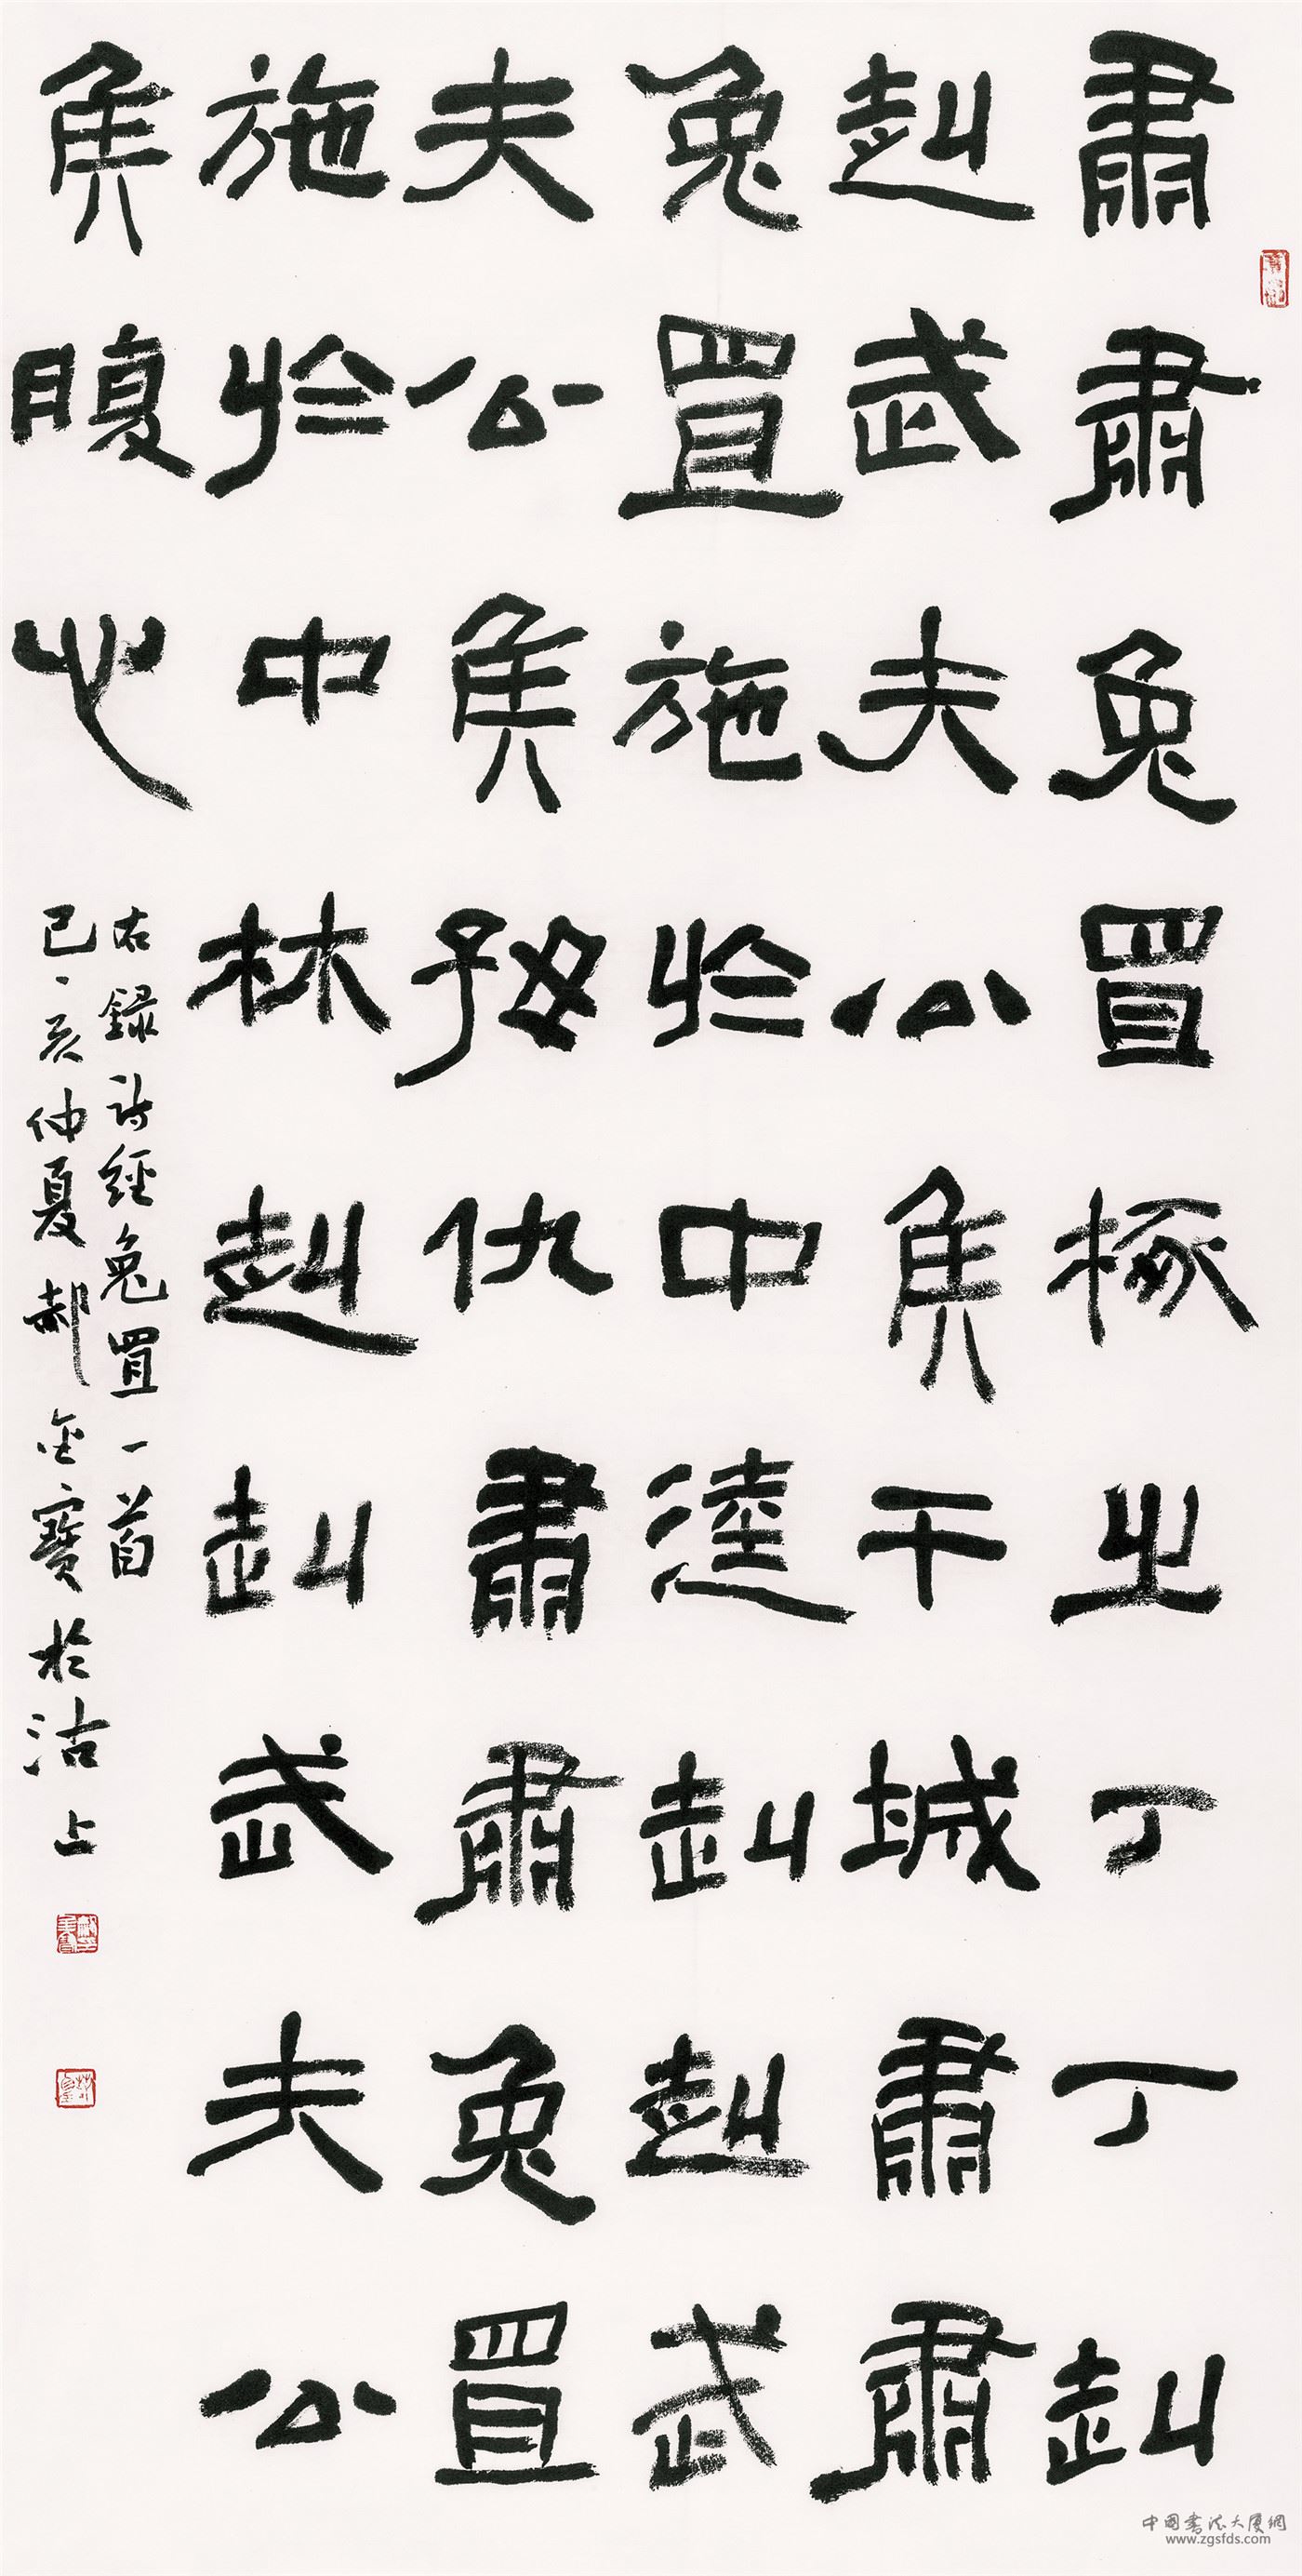 肅肅兔罝椓之丁丁赳
赳武夫公侯干城肅肅
兔罝施於中逵赳赳武
夫公侯好仇肅肅兔罝
施於中林赳赳武夫公
侯腹心
右録詩經兔罝一首
己亥仲夏郝金寶於沽上
中國書法大厦網
www.zgsfds.com